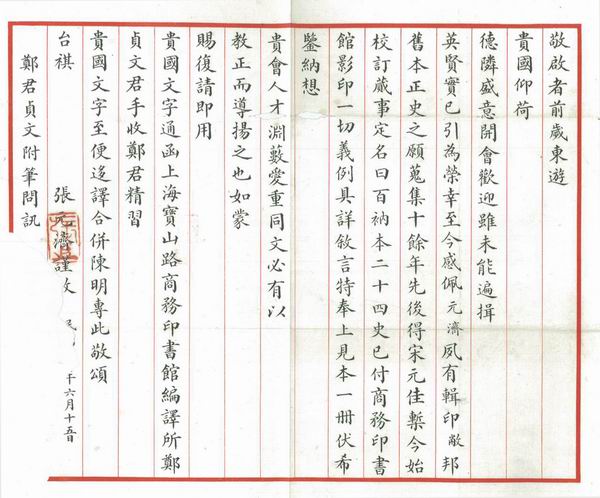 敬啟者前歲東遊
貴國仰荷
德隣盛意開會歡迎雖未能遍揖
英賢實已引為榮幸至今感佩元濟夙有輯印敝邦
舊本正史之願蒐集十餘年先後得宋元佳槧今始
校訂蕆事定名曰百衲本二十四史已付商務印書
館影印一切義例具詳敘言特奉上見本一冊伏希
鑒納想
貴會人才淵藪愛重同文必有以
教正而導揚之也如蒙
賜復請即用
貴國文字通函上海寶山路商務印書館編譯所鄭
貞文君手收鄭君精習
貴國文字至便迻譯合併陳明專此敬頌
台祺 張元濟謹 六月十五日
鄭君貞文附筆問訊